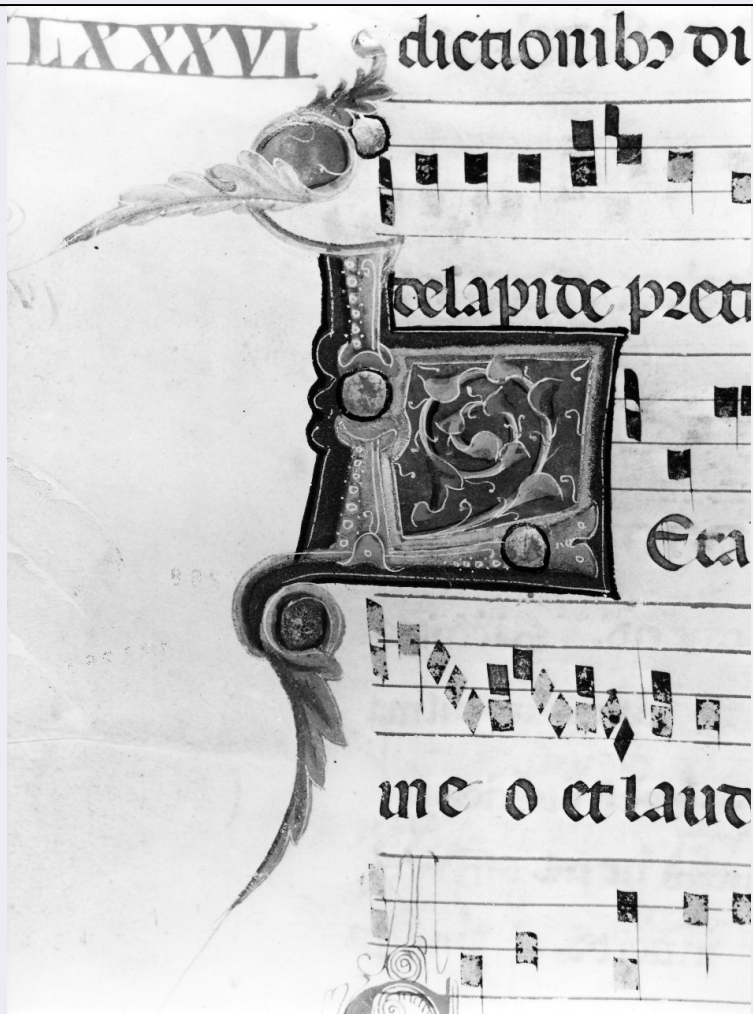 LXXXVI
dictionibꝫ dul
de lapide preti
L
Eta
ine o et laud